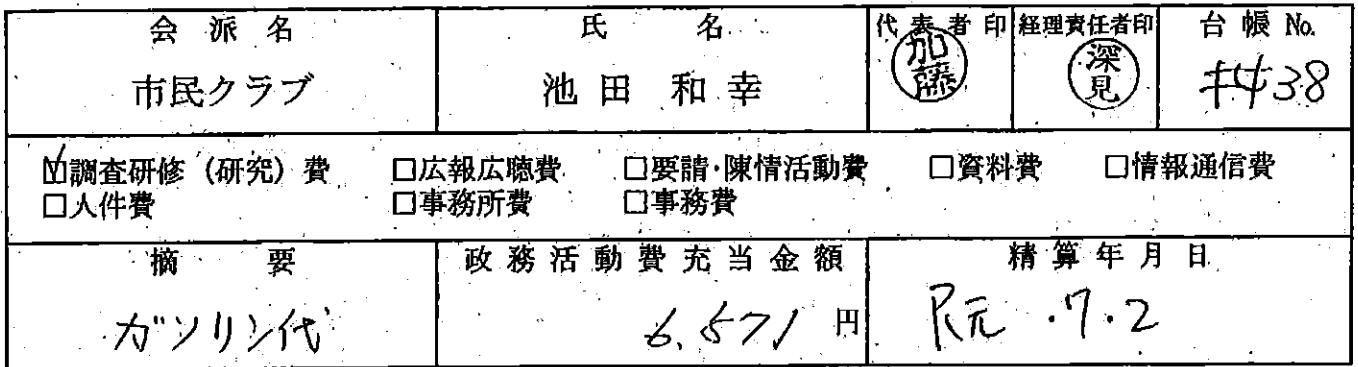 会派名 氏名 代表者印 経理責任者印 台帳No.
市民クラブ 池田 和幸 加藤 深見 #438
☑調査研修（研究）費 □広報広聴費 □要請・陳情活動費 □資料費 □情報通信費
□人件費 □事務所費 □事務費
摘要 政務活動費充当金額 精算年月日
ガソリン代 6,571 円 R元.7.2